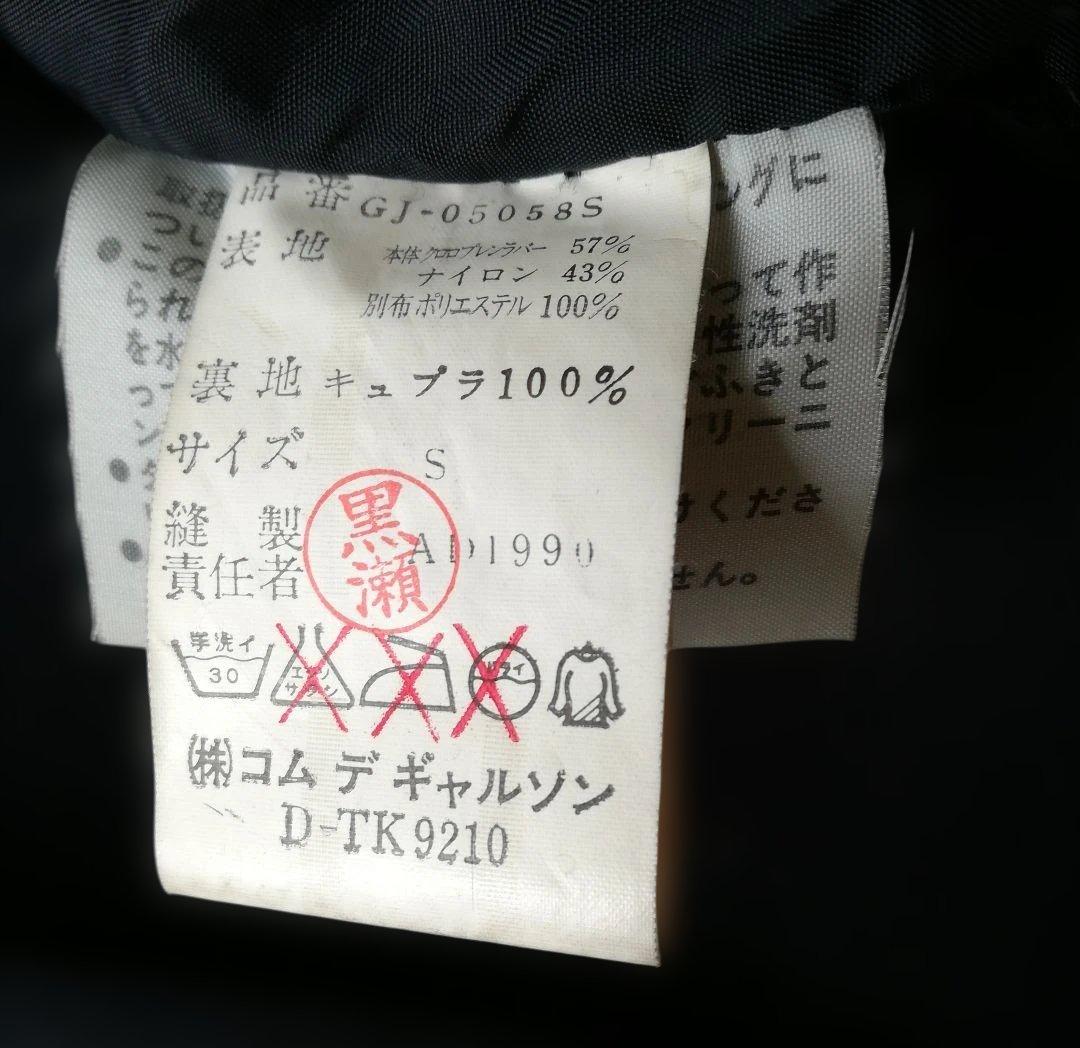 品番 GJ-05058S
表地 本体クロロプレンラバー 57%
ナイロン 43%
別布ポリエステル 100%
裏地 キュプラ100%
サイズ S
縫製
責任者
黒瀬
AD1990
手洗イ
30
エンソ
サラシ
ドライ
(株)コム デ ギャルソン
D-TK9210
取扱
つい
● この
られ
を水
っ
ン
●
●
ングに
って作
性洗剤
ふきと
リーニ
けくださ
せん。